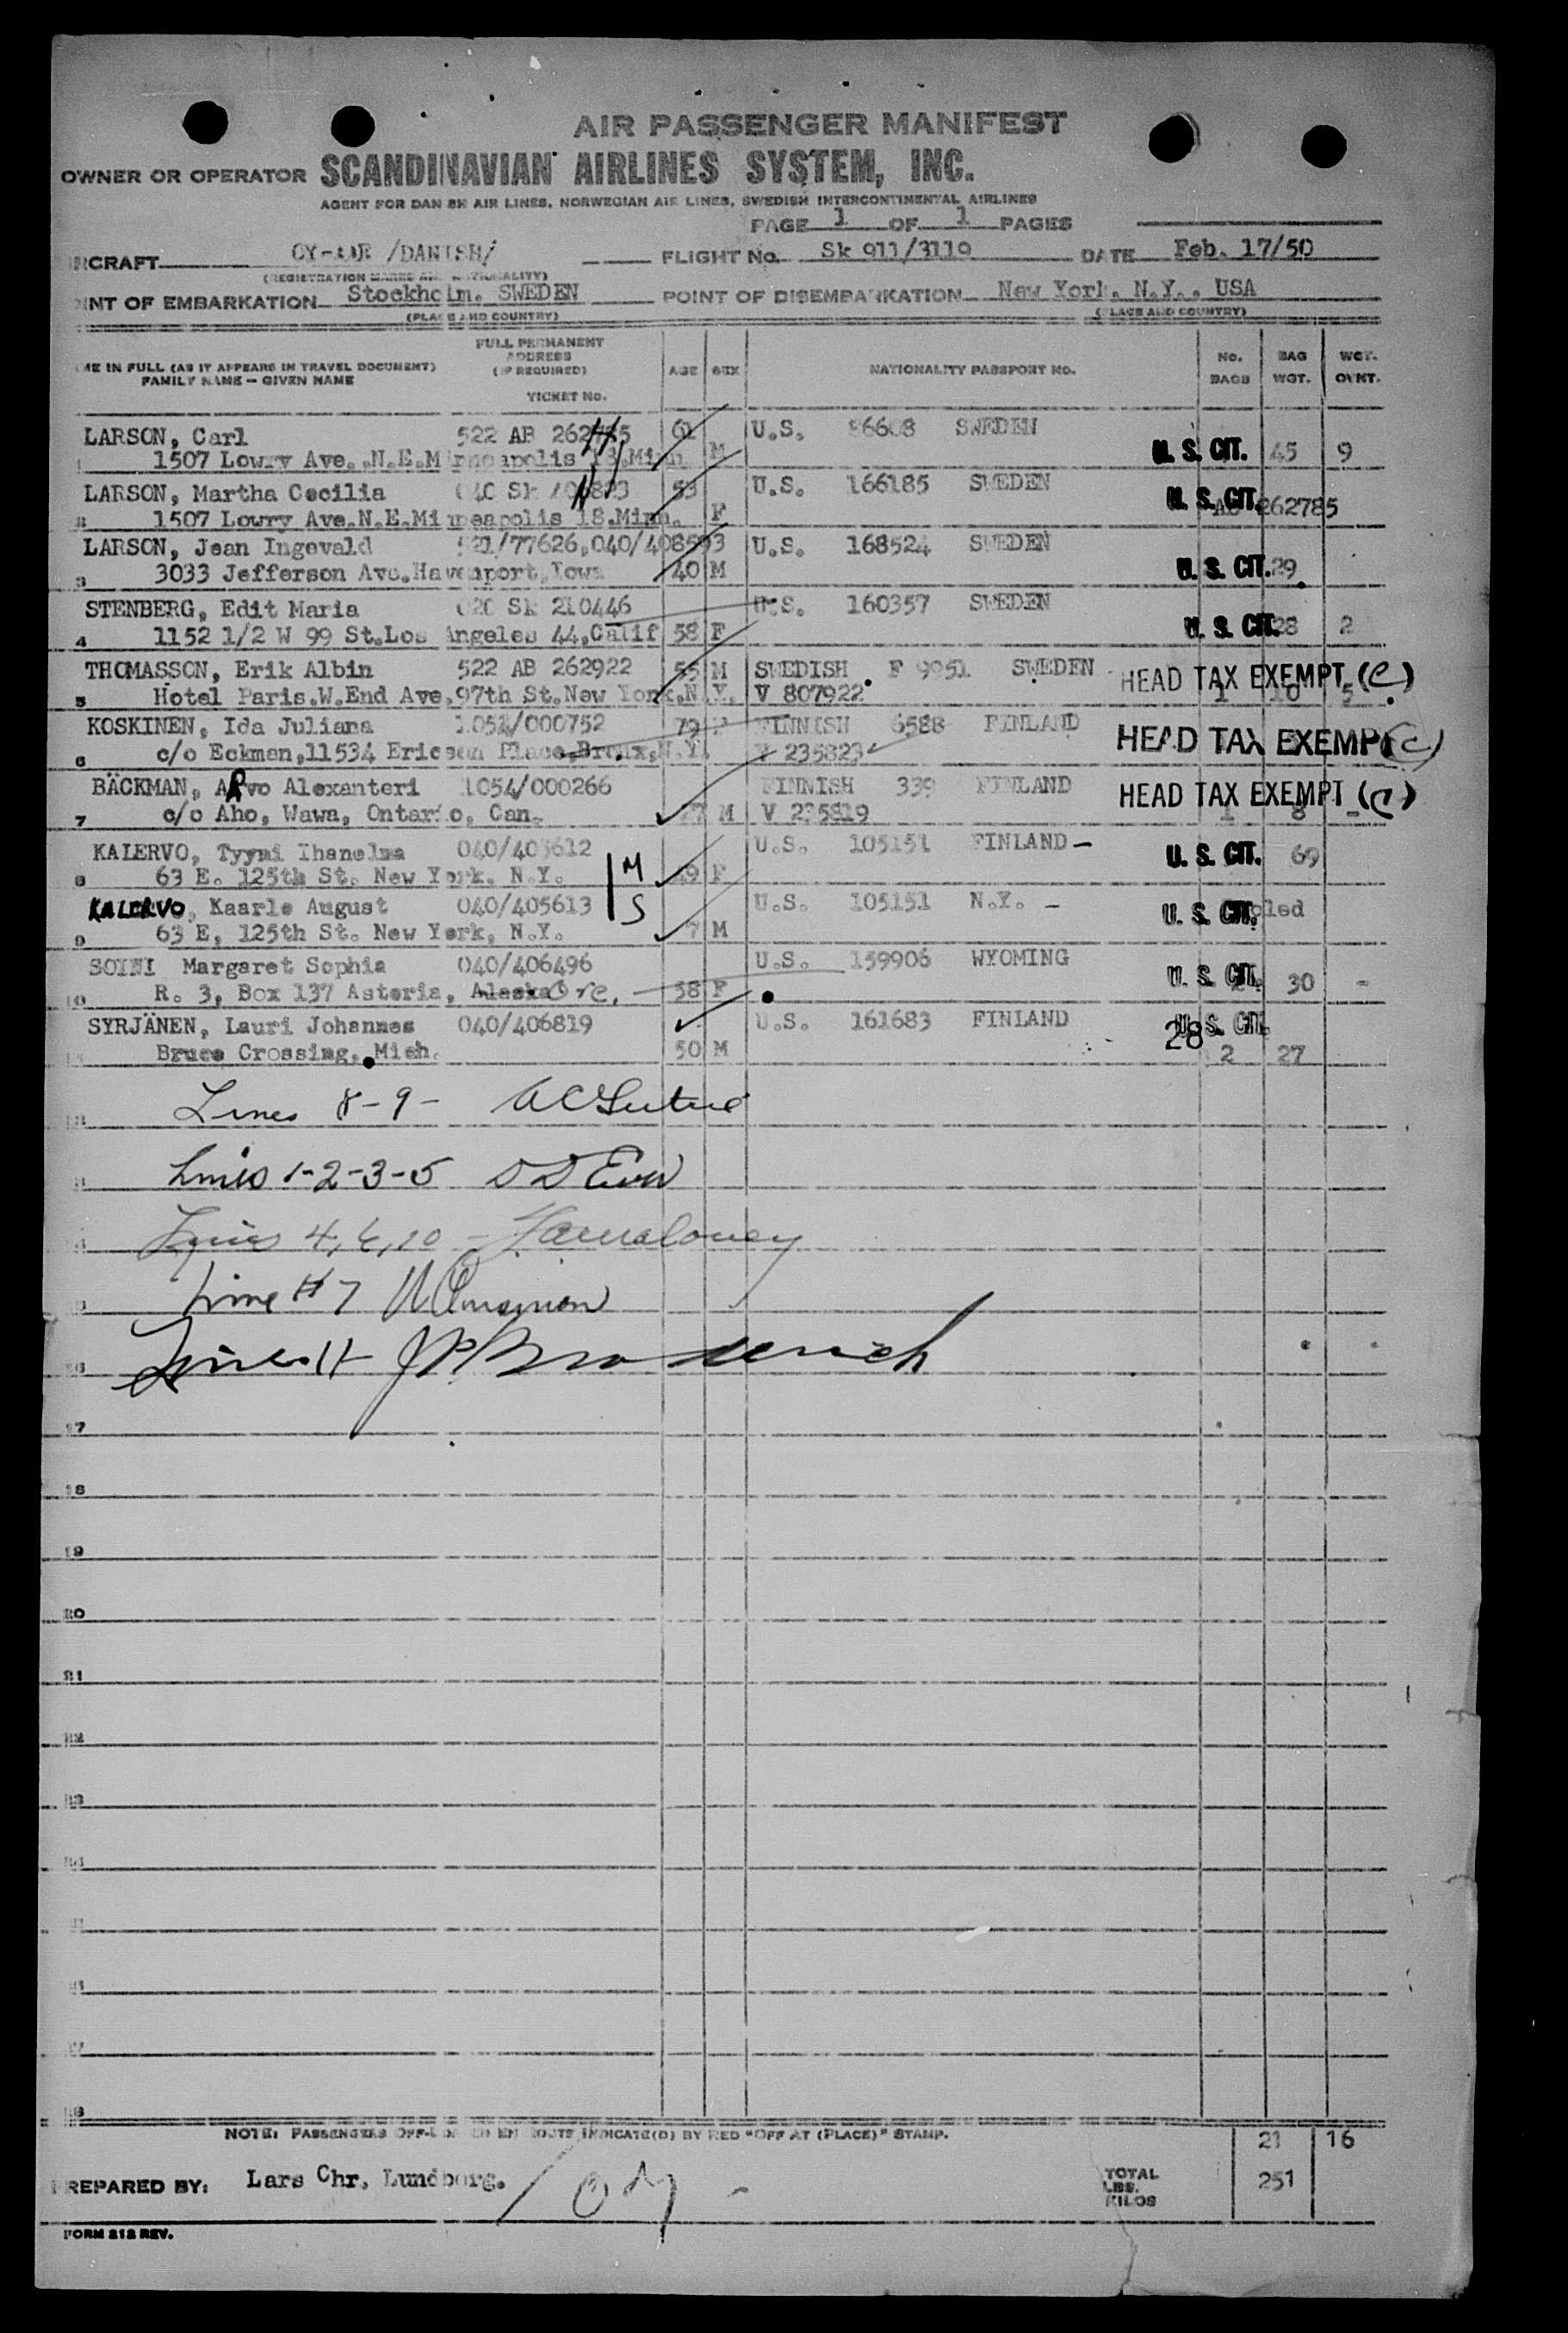 AIR PASSENGER MANIFEST
OWNER OR OPERATOR SCANDINAVIAN AIRLINES SYSTEM, INC.
AGENT FOR DAN SH AIR LINES, NORWEGIAN AIR LINES, SWEDISH INTERCONTINENTAL AIRLINES
PAGE 1 OF 1 PAGES
RCRAFT /DANISH/ FLIGHT No. Sk 911/3119 DATE Feb. 17/50
(REGISTRATION MARKS AND NATIONALITY)
INT OF EMBARKATION Stockholm. SWEDEN POINT OF DISEMBARKATION New York. N.Y., USA
(PLACE AND COUNTRY) (PLACE AND COUNTRY)
ME IN FULL (AS IT APPEARS IN TRAVEL DOCUMENT) FAMILY NAME — GIVEN NAME
FULL PERMANENT ADDRESS (IF REQUIRED) TICKET No.
AGE SEX NATIONALITY PASSPORT NO. No. BAGS BAG WGT. WGT. OVNT.
LARSON, Carl 522 AB 61 U.S. SWEDEN
1507 Lowry Ave.,N.E.Minneapolis 18.Minn M U. S. CIT. 45 9
LARSON, Martha Cecilia 53 U.S. 166185 SWEDEN
2 1507 Lowry Ave.N.E.Minneapolis 18.Minn. F U. S. CIT. 262785
LARSON, Jean Ingevald 521/77626,040/408593 U.S. 168524 SWEDEN
3 3033 Jefferson Ave.Havenport,Iowa 40 M U. S. CIT. 29
STENBERG, Edit Maria 020 Sk 210446 U.S. 160357 SWEDEN
4 1152 1/2 W 99 St.Los Angeles 44,Calif 58 F U. S. CIT. 28 2
THOMASSON, Erik Albin 522 AB 262922 55 M SWEDISH F 9951 SWEDEN HEAD TAX EXEMPT (C)
5 Hotel Paris.W.End Ave,97th St.New York.N.Y. V 807922 1 10 5
KOSKINEN, Ida Juliana 1054/000752 79 F FINNISH 6588 FINLAND HEAD TAX EXEMPT (C)
6 c/o Eckman,11534 Ericson Place,Bronx,N.Y. V 235823
BÄCKMAN, Arvo Alexanteri 1054/000266 FINNISH 339 FINLAND HEAD TAX EXEMPT (C)
7 c/o Aho, Wawa, Ontario, Can. M V 235819 1 8 -
KALERVO, Tyyni Ihanelma U.S. 105151 FINLAND —
8 63 E. 125th St. New York. N.Y. M F U. S. CIT. 69
KALERVO, Kaarle August 040/405613 S U.S. 105151 N.Y. —
9 63 E, 125th St. New York, N.Y. 7 M U. S. CIT.
SOINI Margaret Sophia 040/406496 U.S. 159906 WYOMING
10 R. 3, Box 137 Astoria, Alaska Ore. 58 F U. S. CIT. 30 -
SYRJÄNEN, Lauri Johannes 040/406819 U.S. 161683 FINLAND U. S. CIT.
Bruce Crossing, Mich. 50 M 28 2 27
Lines 8-9-
Lines 1-2-3-5
Lines 4,6,10 -
Line #7
17
18
19
20
21
22
23
NOTE: PASSENGERS OFF-LOADED EN ROUTE INDICATE(D) BY RED "OFF AT (PLACE)" STAMP. 21 16
PREPARED BY: Lars Chr. Lundborg. TOTAL LBS. KILOS 251
FORM 212 REV.